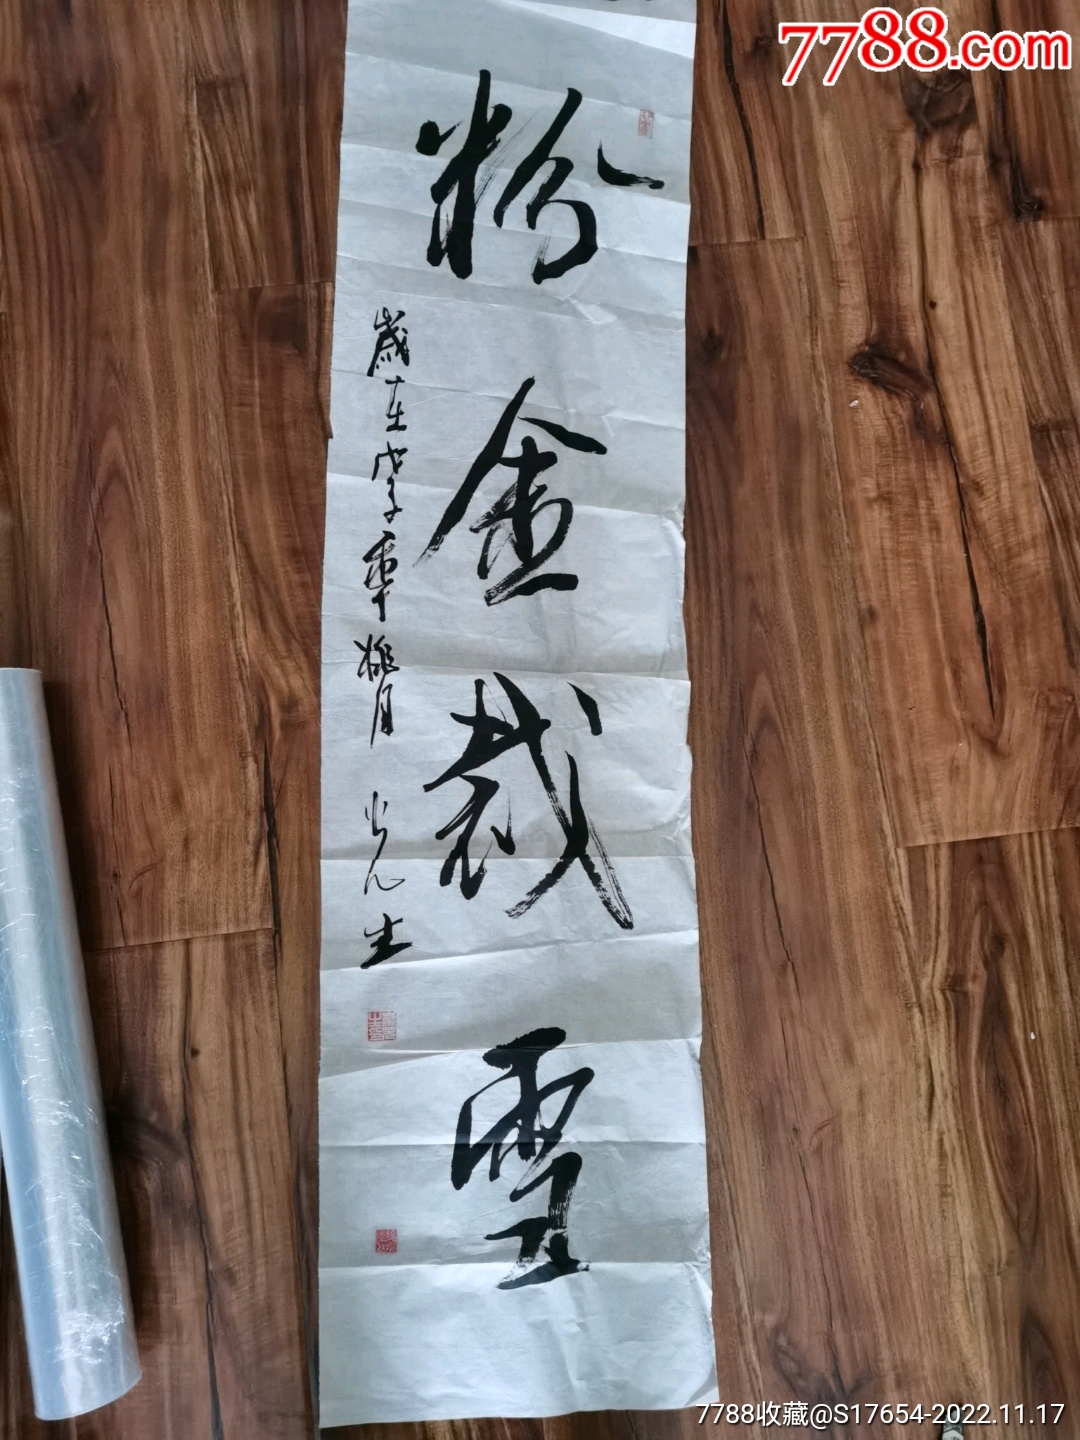 7788.com
粉金裁雪
歲在戊子年臘月
7788收藏@S17654-2022.11.17